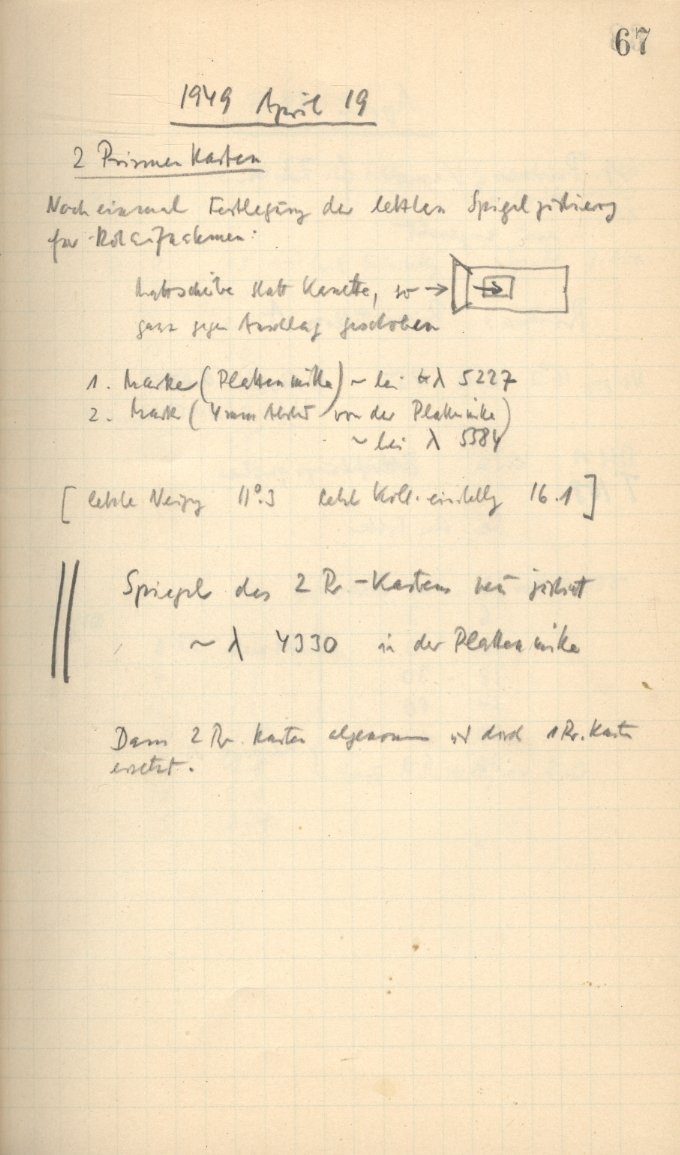 67
1949 April 19
2 Prismen Kasten
Noch einmal Festlegung der letzten Spiegeljustierung
für Rotaufnahmen:
Mattscheibe statt Kassette, so
ganz gegen Anschlag geschoben
1. Marke (Plattenmitte) ~ bei λ 5227
2. Marke (4mm von der Plattenmitte)
~ bei λ 5384
[letzte Neigg 11°.3 letzte Koll. einstellg 16.1]
Spiegel des 2 Pr-Kastens neu justiert
~ λ 4330 in der Plattenmitte
Dann 2 Pr. Kasten abgenommen und durch 1 Pr. Kasten
ersetzt.